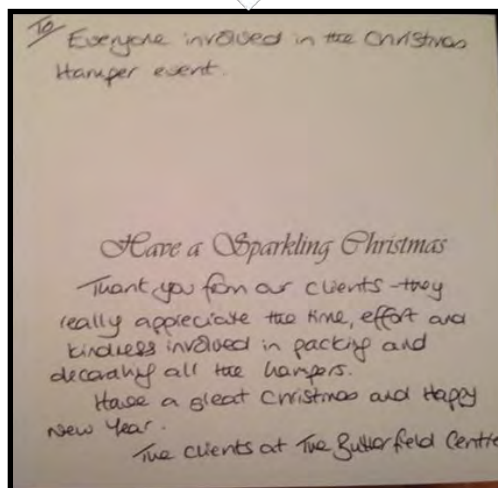 To
Everyone involved in the Christmas
Hamper event.
Have a Sparkling Christmas
Thank you from our clients - they
really appreciate the time, effort and
kindness involved in packing and
decorating all the hampers.
Have a great Christmas and Happy
New Year.
The clients at The Butterfield Centre